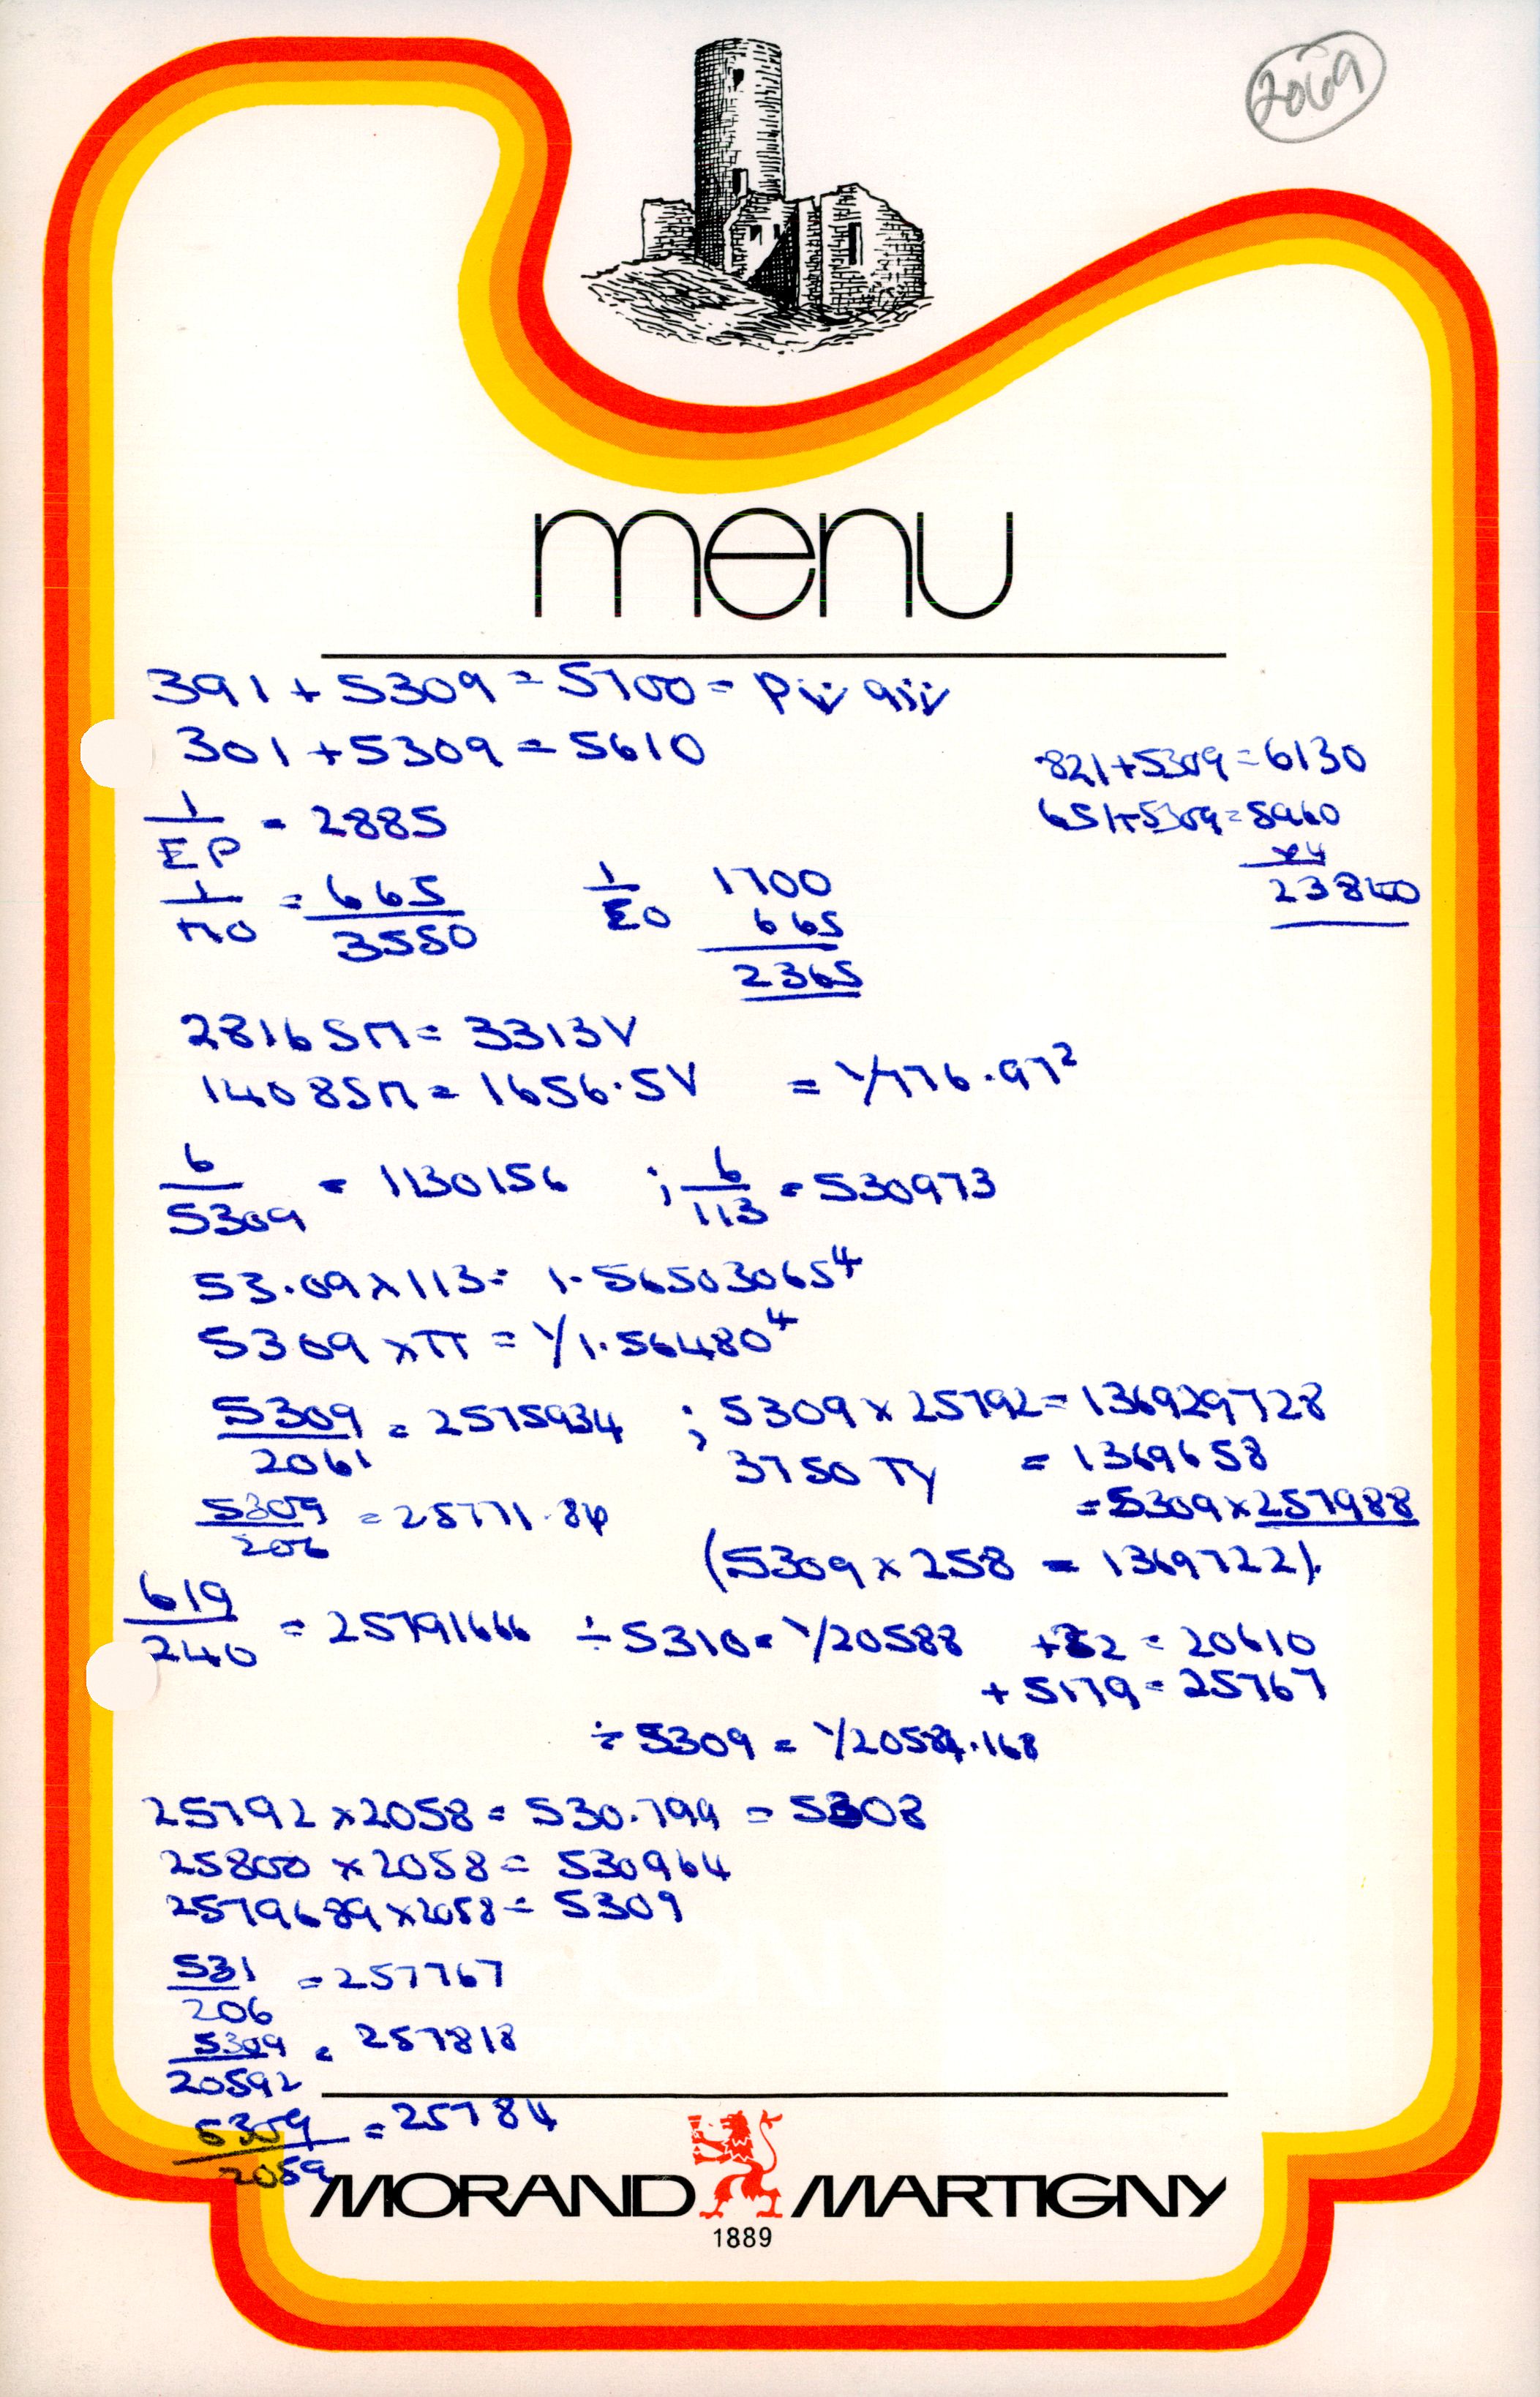 2069
menu
391 + 5309 = 5700 =
301 + 5309 = 5610
821 + 5309 = 6130
651 + 5309 = 5960
x4
23840
1/EP = 2885
1/MO = 665/3550
1/EO 1700
665
2365
2816 SM = 3313V
1408 SM = 1656.5V = 1/776.97²
6/5309 = 1130156 ; 6/113 = 530973
53.09 x 113 = 1.56503065⁴
5309 x π = 1/1.56480⁴
5309/2061 = 2575934 ; 5309 x 25792 = 136929728
3750 TY = 1369658
= 5309 x 257988
5309/206 = 25771.84
(5309 x 258 = 1369722).
619/240 = 25791666 ÷ 5310 = 1/20588 +22 = 20610
+ 5179 = 25767
÷ 5309 = 1/20584.168
25792 x 2058 = 530.799 = 5308
25800 x 2058 = 530964
2579689 x 2058 = 5309
531/206 = 257767
5309/20592 = 257818
5309/2059 = 25784
MORAND MARTIGNY
1889